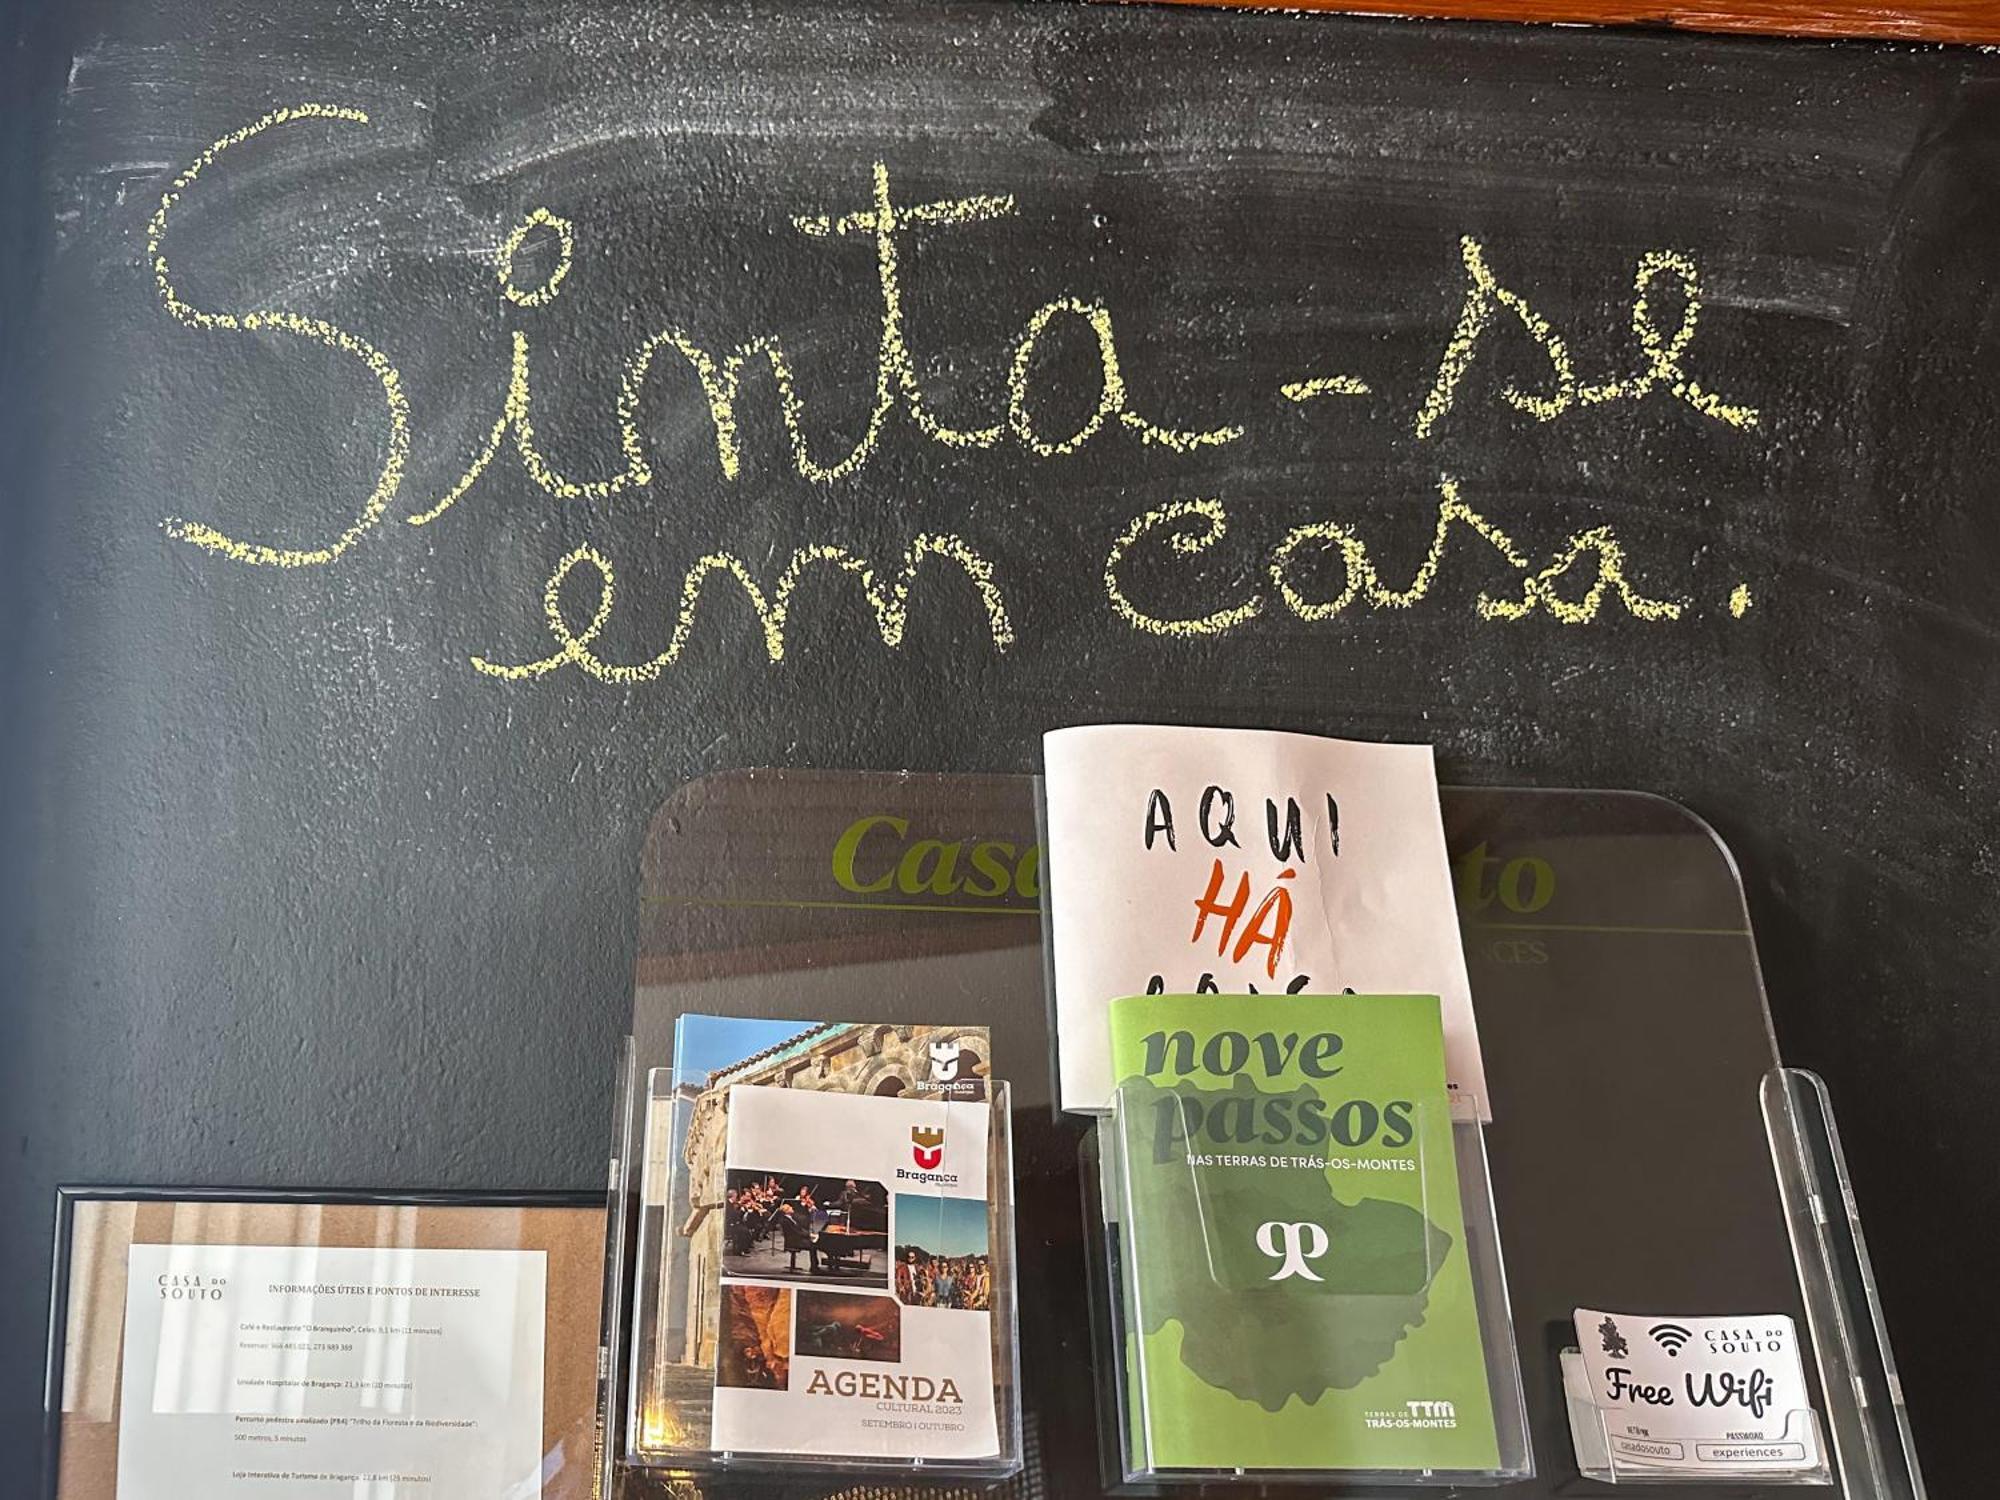 Sinta-se
em casa.
AQUI
HÁ
Bragança
Bragança
município
nove
passos
NAS TERRAS DE TRÁS-OS-MONTES
TERRAS DE TTM
TRÁS-OS-MONTES
AGENDA
CULTURAL 2023
SETEMBRO | OUTUBRO
CASA DO
SOUTO
INFORMAÇÕES ÚTEIS E PONTOS DE INTERESSE
Café e Restaurante "O Branquinho",
Unidade Hospitalar de Bragança: 21,3 km (20 minutos)
Percurso pedestre sinalizado (PR4) "Trilho da Floresta e da Biodiversidade":
500 metros, 5 minutos
Loja Interativa de Turismo de Bragança: 22,8 km (25 minutos)
CASA DO
SOUTO
Free Wifi
PASSWORD
casadosouto
experiences